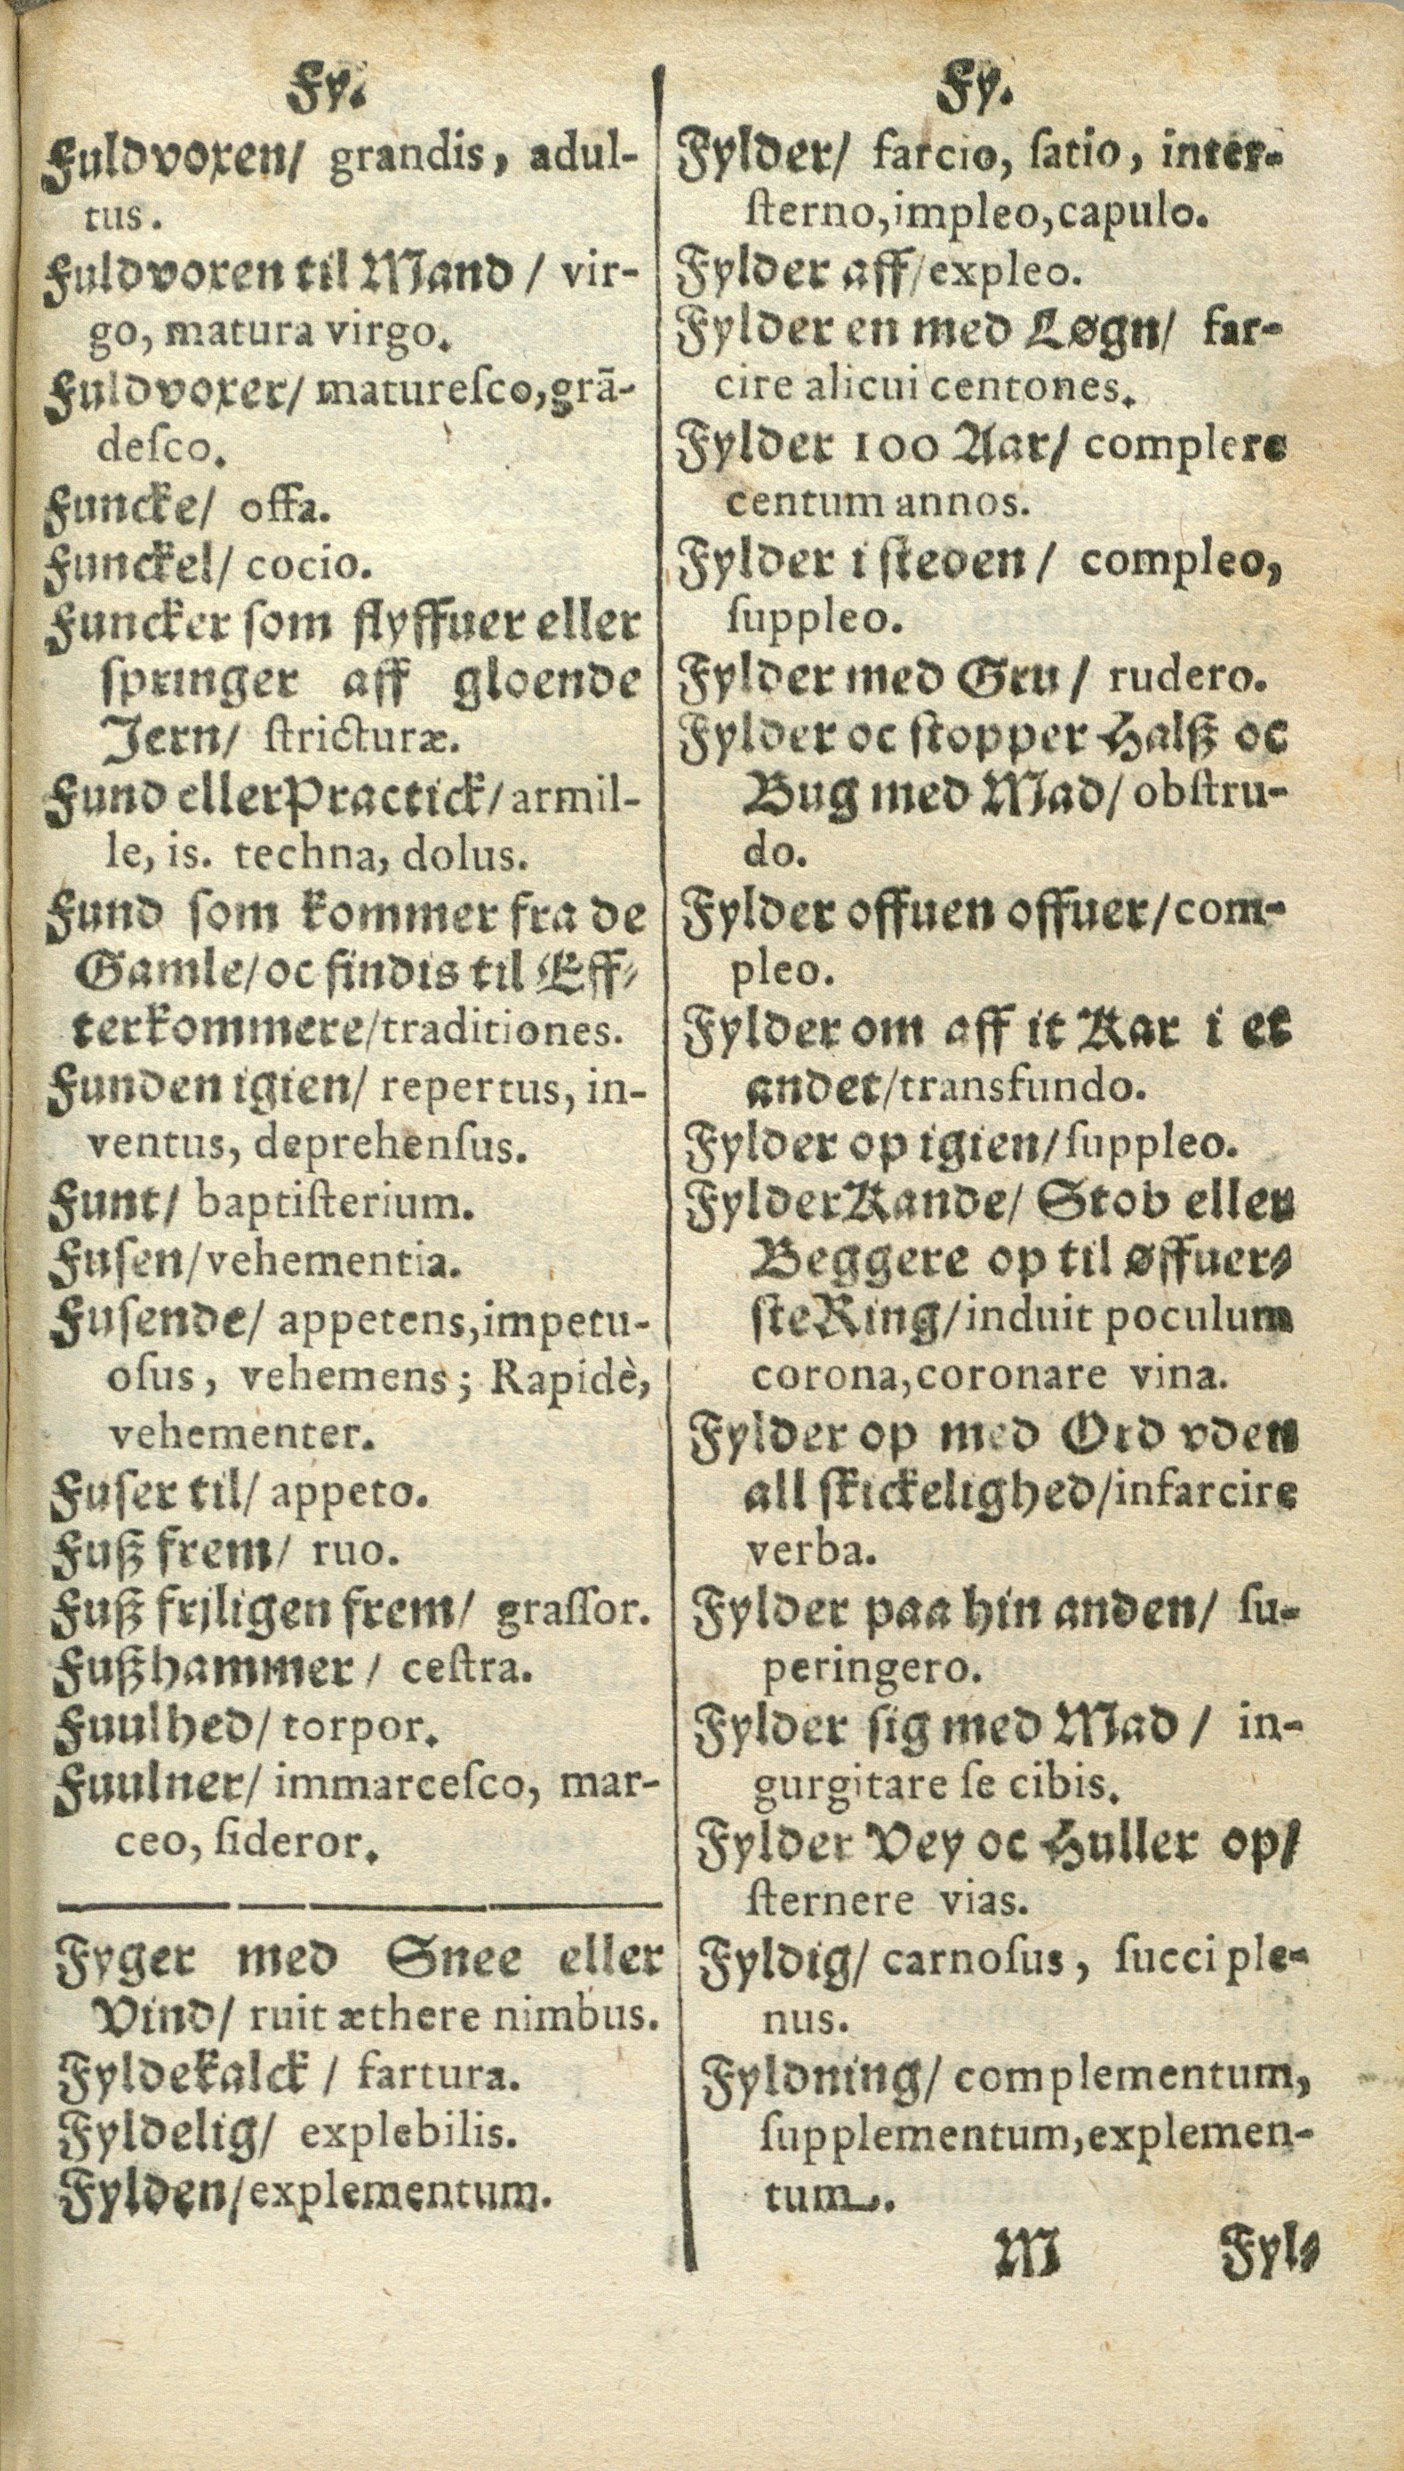 Fy.
Fuldvoxen/ grandis, adul-
tus.
Fuldvoxen til Mand / vir-
go, matura virgo.
Fuldvoxer/ matureſco,grã-
deſco.
Funcke/ offa.
Funckel/ cocio.
Funcker ſom flyffuer eller
ſpringer aff gloende
Jern/ ſtricturæ.
Fund eller Practick/ armil-
le, is. techna, dolus.
Fund ſom kommer fra de
Gamle/ oc findis til Eff-
terkommere/traditiones.
Funden igien/ repertus, in-
ventus, deprehenſus.
Funt/ baptiſterium.
Fuſen/vehementia.
Fuſende/ appetens,impetu-
oſus, vehemens; Rapidè,
vehementer.
Fuſer til/ appeto.
Fuß frem/ ruo.
Fuß frjligen frem/ graſſor.
Fußhammer / ceſtra.
Fuulhed/ torpor.
Fuulner/ immarceſco, mar-
ceo, ſideror.
Fyger med Snee eller
Vind/ ruit æthere nimbus.
Fyldekalck / fartura.
Fyldelig/ explebilis.
Fylden/explementum.
Fy.
Fylder/ farcio, ſatio, inter-
ſterno,impleo,capulo.
Fylder aff/expleo.
Fylder en med Løgn/ far-
cire alicui centones.
Fylder 100 Aar/ complere
centum annos.
Fylder i ſteden / compleo,
ſuppleo.
Fylder med Gru / rudero.
Fylder oc ſtopper Halß oc
Bug med Mad/ obſtru-
do.
Fylder offuen offuer/com-
pleo.
Fylder om aff it Kar i et
andet/transfundo.
Fylder op igien/ſuppleo.
Fylder Kande/ Stob eller
Beggere op til øffuer-
ſte Ring/induit poculum
corona,coronare vina.
Fylder op med Ord vden
all ſkickelighed/infarcire
verba.
Fylder paa hin anden/ ſu-
peringero.
Fylder ſig med Mad / in-
gurgitare ſe cibis.
Fylder Vey oc Huller op/
ſternere vias.
Fyldig/ carnoſus, ſucci ple-
nus.
Fyldning/ complementum,
ſupplementum,explemen-
tum.
M Fyl-